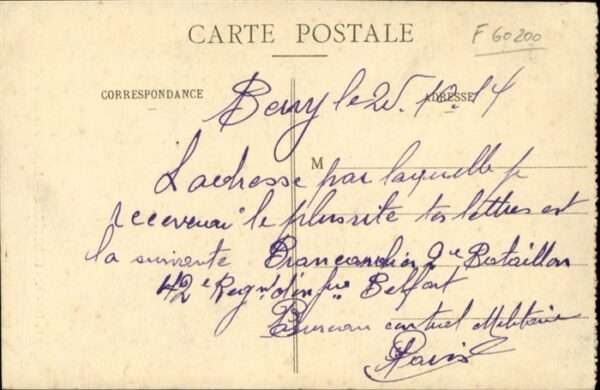 CARTE POSTALE
F 60200
CORRESPONDANCE
ADRESSE
le 25. 10. 14
M
L'adresse par laquelle je
recevrai le plus vite tes lettres est
la suivante Brancardier 2e Bataillon
42e Regnt d'infie Belfort
Bureau central Militaire
Paris